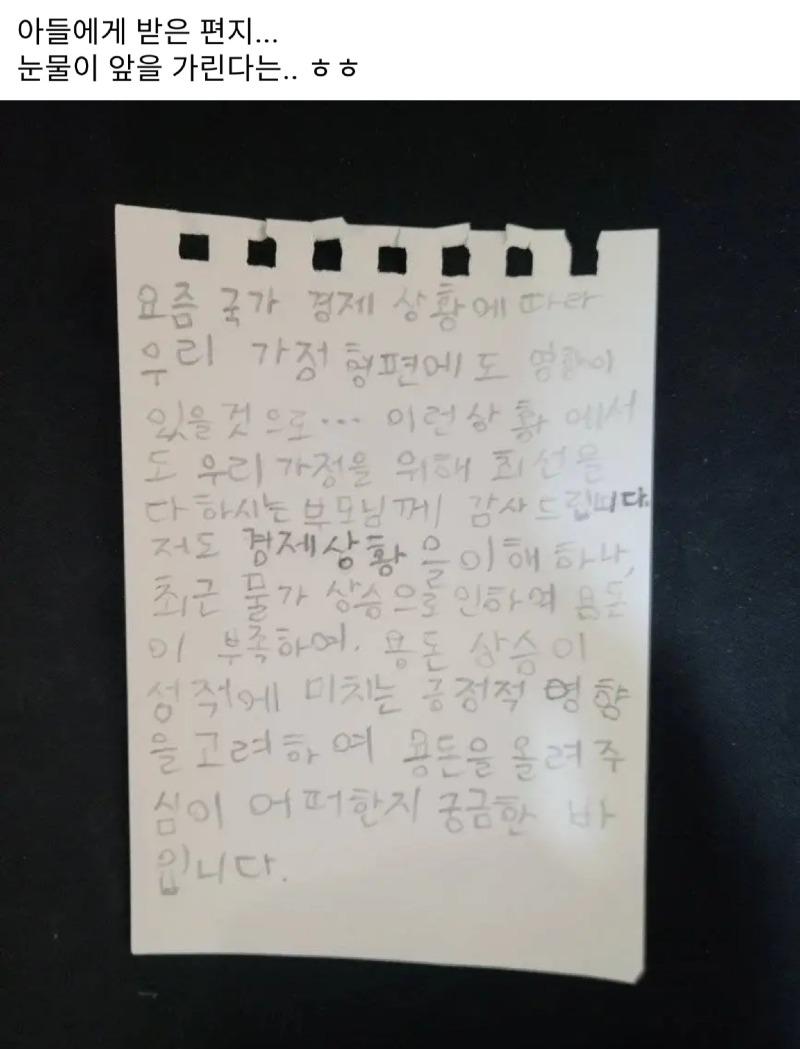 아들에게 받은 편지...
눈물이 앞을 가린다는.. ㅎㅎ
요즘 국가 경제 상황에 따라
우리 가정 형편에도 영향이
있을것으로... 이런상황에서
도 우리가정을 위해 최선을
다하시는 부모님께 감사드립띠다.
저도 경제상황을 이해 하나,
최근 물가 상승으로 인하여 용돈
이 부족하여. 용돈 상승이
성적에 미치는 긍정적 영향
을 고려하여 용돈을 올려주
심이 어떠한지 궁금한 바
입니다.